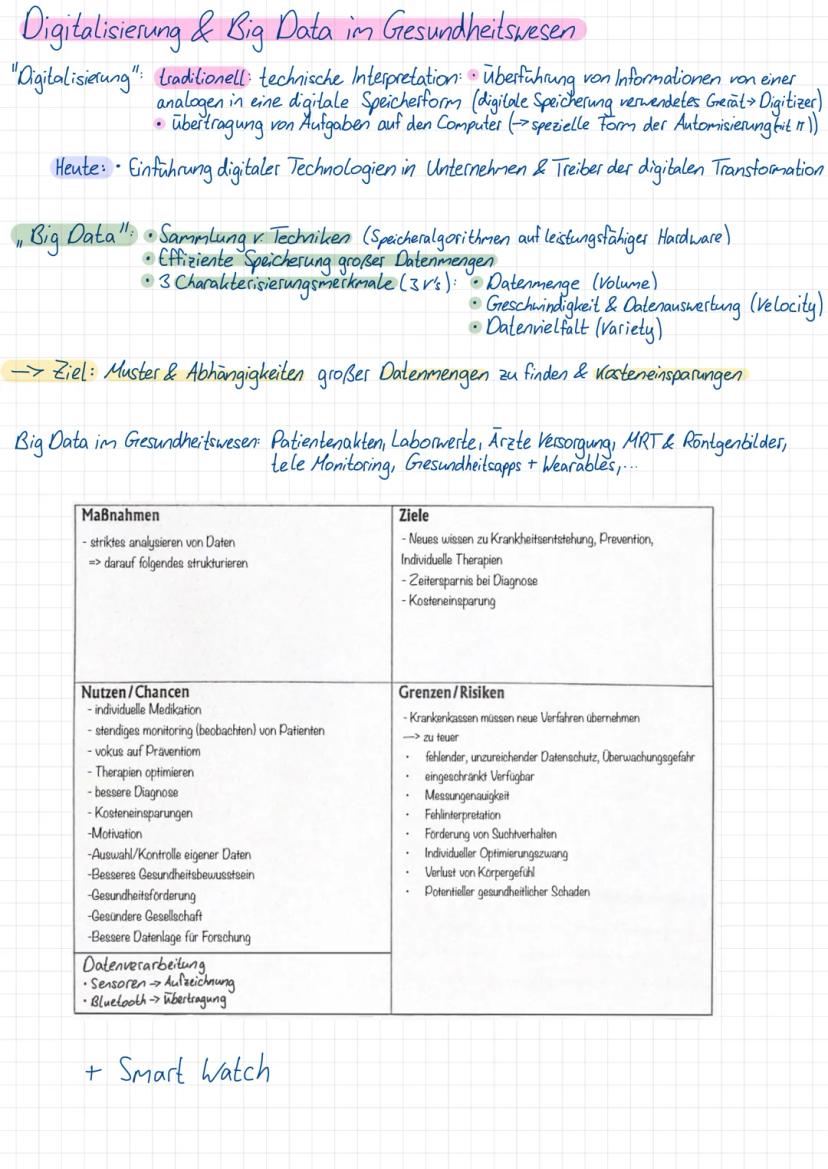 Digitalisierung & Big Data im Gesundheitswesen
"Digitalisierung": traditionell: technische Interpretation: • Überführung von Informationen von einer
analogen in eine digitale Speicherform (digitale Speicherung verwendetes Gerät → Digitizer)
• übertragung von Aufgaben auf den Computer (→ spezielle Form der Automisierung mit IT))
Heute: • Einführung digitaler Technologien in Unternehmen & Treiber der digitalen Transformation
„Big Data": • Sammlung v. Techniken (Speicheralgorithmen auf leistungsfähiger Hardware)
• Effiziente Speicherung großer Datenmengen
• 3 Charakterisierungsmerkmale (3 V's): • Datenmenge (Volume)
• Geschwindigkeit & Datenauswertung (Velocity)
• Datenvielfalt (Variety)
→ Ziel: Muster & Abhängigkeiten großer Datenmengen zu finden & Kosteneinsparungen
Big Data im Gesundheitswesen: Patientenakten, Laborwerte, Ärzte Versorgung, MRT & Röntgenbilder,
tele Monitoring, Gesundheitsapps + Wearables,...
Maßnahmen
- striktes analysieren von Daten
=> darauf folgendes strukturieren
Ziele
- Neues wissen zu Krankheitsentstehung, Prevention,
Individuelle Therapien
- Zeitersparnis bei Diagnose
- Kosteneinsparung
Nutzen/Chancen
- individuelle Medikation
- stendiges monitoring (beobachten) von Patienten
- vokus auf Präventiom
- Therapien optimieren
- bessere Diagnose
- Kosteneinsparungen
-Motivation
-Auswahl/Kontrolle eigener Daten
-Besseres Gesundheitsbewusstsein
-Gesundheitsförderung
-Gesündere Gesellschaft
-Bessere Datenlage für Forschung
Datenverarbeitung
• Sensoren → Aufzeichnung
• Bluetooth → übertragung
Grenzen/Risiken
- Krankenkassen müssen neue Verfahren übernehmen
—> zu teuer
• fehlender, unzureichender Datenschutz, Überwachungsgefahr
• eingeschränkt Verfügbar
• Messungenauigkeit
• Fehlinterpretation
• Förderung von Suchtverhalten
• Individueller Optimierungszwang
• Verlust von Körpergefühl
• Potentieller gesundheitlicher Schaden
+ Smart Watch